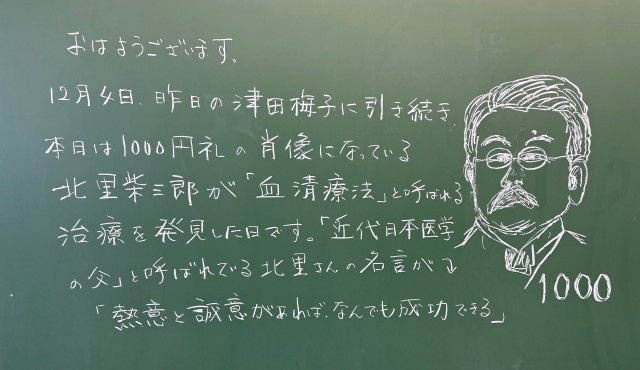 おはようございます。
12月4日、昨日の津田梅子に引き続き、
本日は1000円札の肖像になっている
北里柴三郎が「血清療法」と呼ばれる
治療を発見した日です。「近代日本医学
の父」と呼ばれている北里さんの名言が↓
「熱意と誠意があれば、なんでも成功できる」
1000